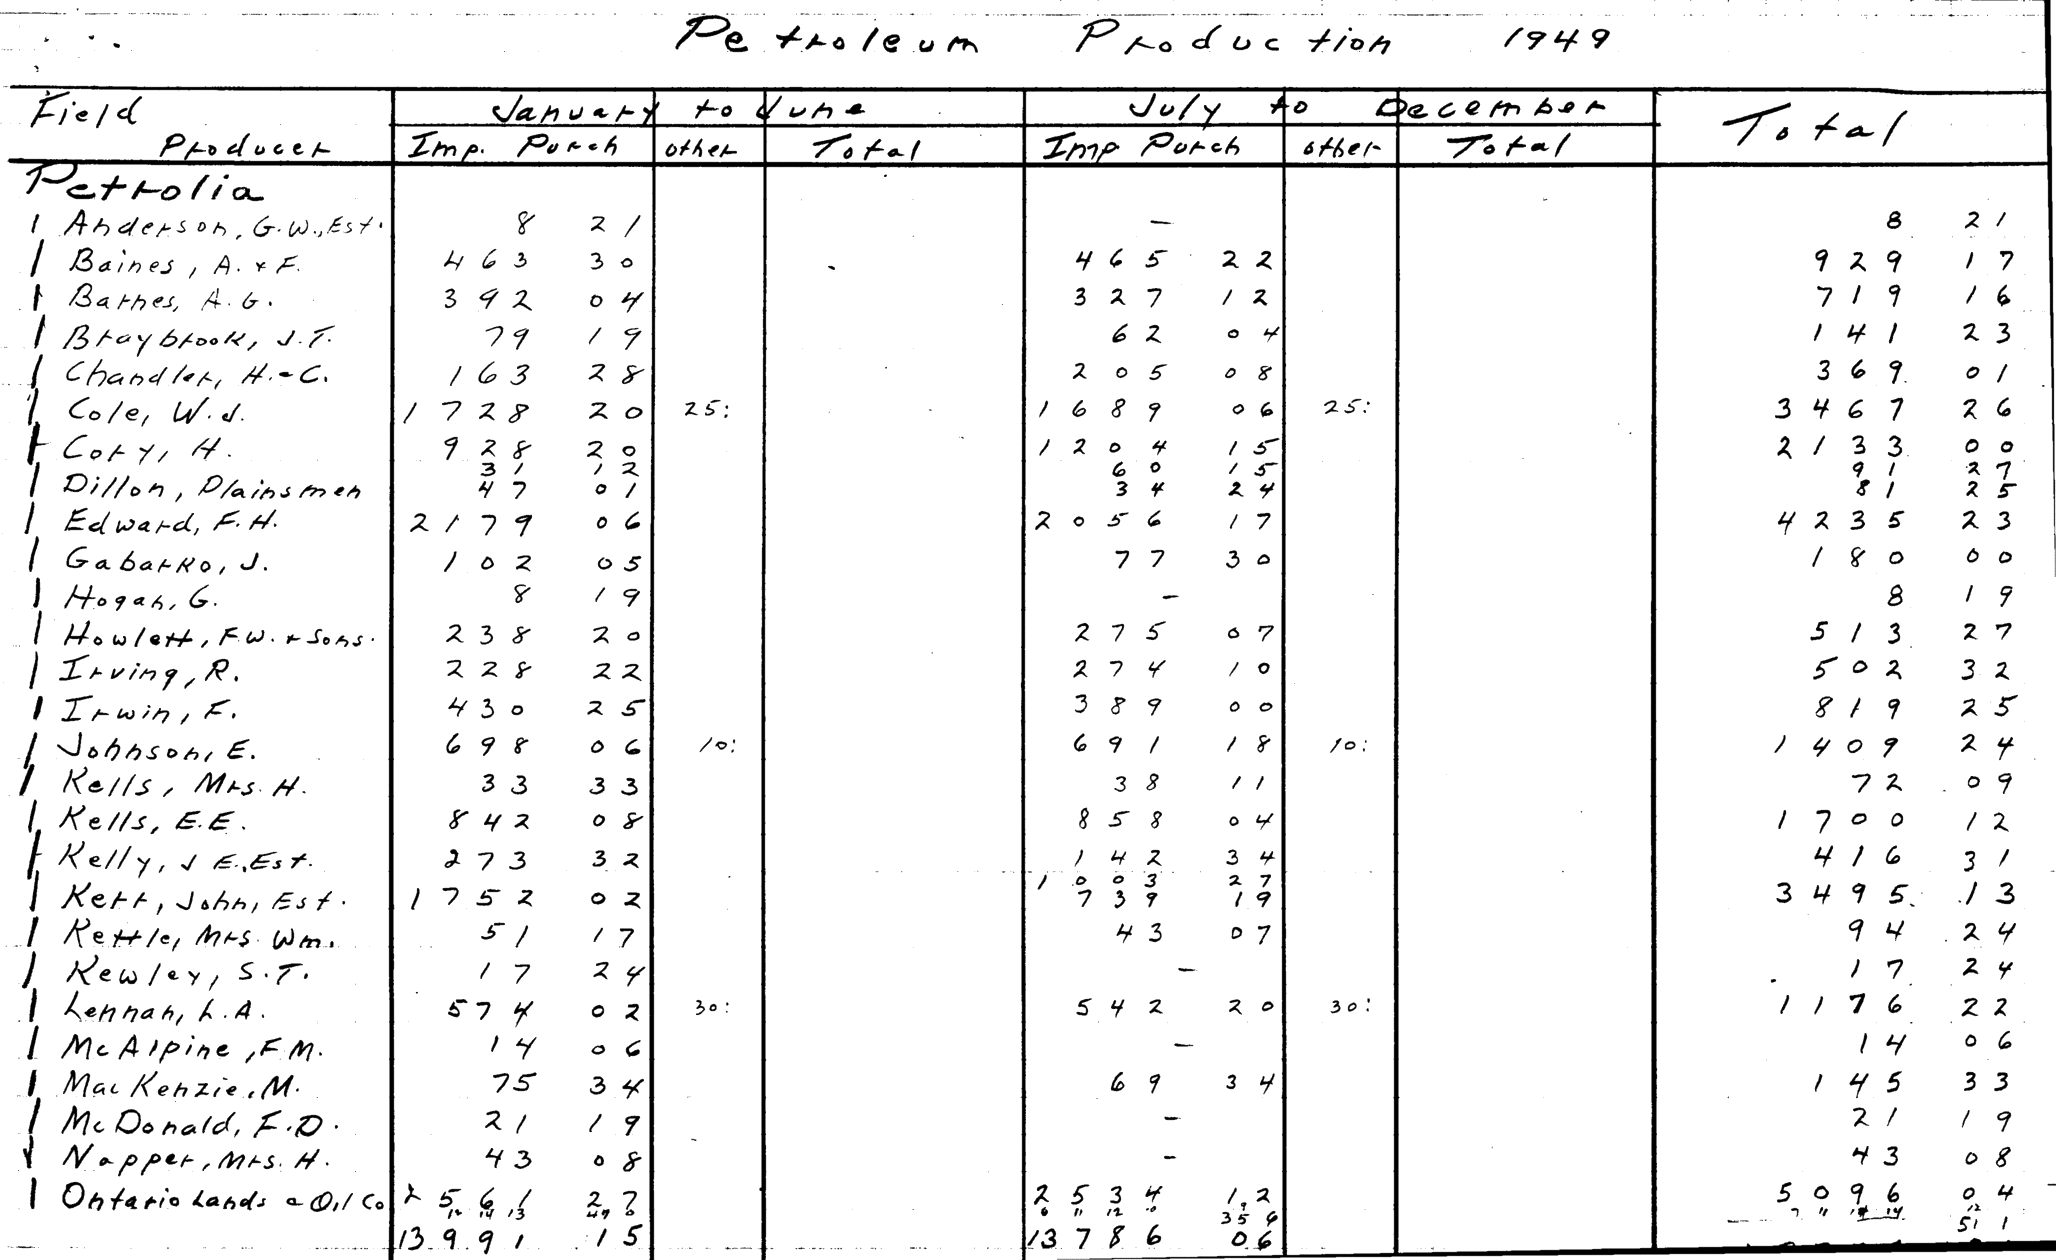 Petroleum Production 1949
Field January to June July to December Total
Producer Imp. Purch other Total Imp Purch other Total
Petrolia
1 Anderson, G.W., Est. 8 21 — 8 21
1 Baines, A. & F. 463 30 465 22 929 17
1 Barnes, A.G. 392 04 327 12 719 16
1 Braybrook, J.T. 79 19 62 04 141 23
1 Chandler, H.-C. 163 28 205 08 369 01
1 Cole, W.J. 1728 20 25: 1689 06 25: 3467 26
1 Cory, H. 928 20 1204 15 2133 00
31 12 60 15 91 27
1 Dillon, Plainsmen 47 01 34 24 81 25
1 Edward, F.H. 2179 06 2056 17 4235 23
1 Gabarko, J. 102 05 77 30 180 00
1 Hogan, G. 8 19 — 8 19
1 Howlett, F.W. & Sons. 238 20 275 07 513 27
1 Irving, R. 228 22 274 10 502 32
1 Irwin, F. 430 25 389 00 819 25
1 Johnson, E. 698 06 10: 691 18 10: 1409 24
1 Kells, Mrs. H. 33 33 38 11 72 09
1 Kells, E.E. 842 08 858 04 1700 12
1 Kelly, J E., Est. 273 32 142 34 416 31
1003 27
1 Kerr, John, Est. 1752 02 739 19 3495 13
1 Kettle, Mrs. Wm. 51 17 43 07 94 24
1 Kewley, S.T. 17 24 — 17 24
1 Lennan, L.A. 574 02 30: 542 20 30: 1176 22
1 McAlpine, F.M. 14 06 — 14 06
1 MacKenzie, M. 75 34 69 34 145 33
1 McDonald, F.D. 21 19 — 21 19
1 Napper, Mrs. H. 43 08 — 43 08
1 Ontario Lands & Oil Co 2561 27 2534 12 5096 04
13991 15 13786 06 511